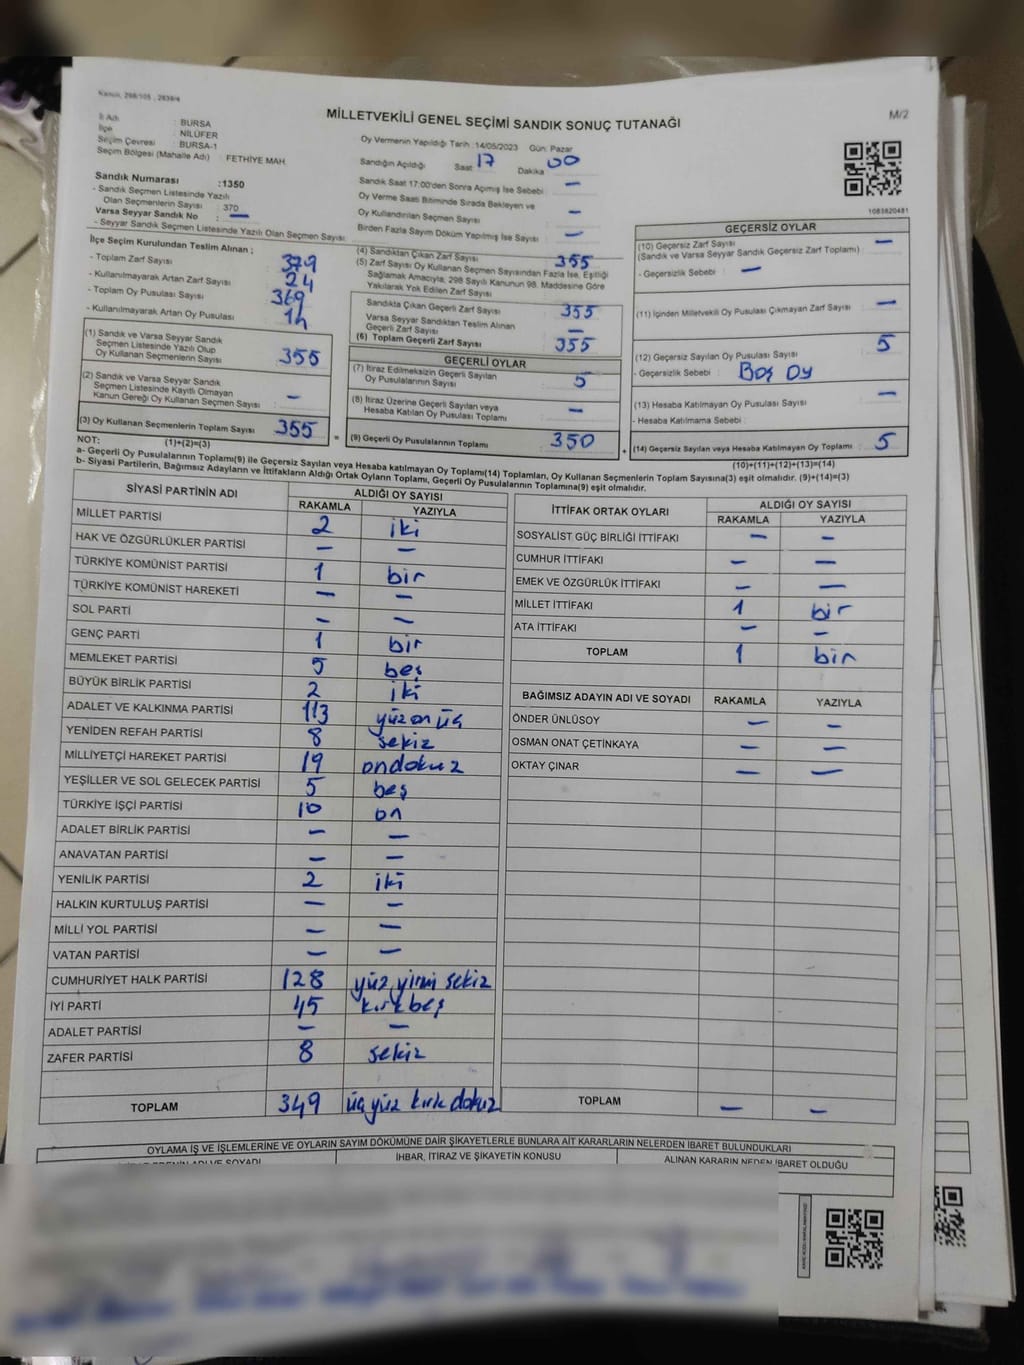 Kanun, 298/105 , 2839/4
MİLLETVEKİLİ GENEL SEÇİMİ SANDIK SONUÇ TUTANAĞI
M/2
İl Adı : BURSA
İlçe : NİLÜFER
Seçim Çevresi : BURSA-1
Seçim Bölgesi (Mahalle Adı) : FETHİYE MAH.
Sandık Numarası :1350
- Sandık Seçmen Listesinde Yazılı
Olan Seçmenlerin Sayısı : 370
Varsa Seyyar Sandık No : —
- Seyyar Sandık Seçmen Listesinde Yazılı Olan Seçmen Sayısı:
Oy Vermenin Yapıldığı Tarih :14/05/2023 Gün: Pazar
Sandığın Açıldığı Saat 17 Dakika 00
Sandık Saat 17:00'den Sonra Açımış İse Sebebi : —
Oy Verme Saati Bitiminde Sırada Bekleyen ve
Oy Kullandırılan Seçmen Sayısı : —
Birden Fazla Sayım Döküm Yapılmış İse Sayısı : —
1083820481
İlçe Seçim Kurulundan Teslim Alınan ;
- Toplam Zarf Sayısı : 379
- Kullanılmayarak Artan Zarf Sayısı : 24
- Toplam Oy Pusulası Sayısı : 369
- Kullanılmayarak Artan Oy Pusulası : 14
(1) Sandık ve Varsa Seyyar Sandık
Seçmen Listesinde Yazılı Olup
Oy Kullanan Seçmenlerin Sayısı : 355
(2) Sandık ve Varsa Seyyar Sandık
Seçmen Listesinde Kayıtlı Olmayan
Kanun Gereği Oy Kullanan Seçmen Sayısı : —
(3) Oy Kullanan Seçmenlerin Toplam Sayısı : 355
(4) Sandıktan Çıkan Zarf Sayısı : 355
(5) Zarf Sayısı Oy Kullanan Seçmen Sayısından Fazla İse, Eşitliği
Sağlamak Amacıyla, 298 Sayılı Kanunun 98. Maddesine Göre
Yakılarak Yok Edilen Zarf Sayısı :
Sandıkta Çıkan Geçerli Zarf Sayısı : 355
Varsa Seyyar Sandıktan Teslim Alınan
Geçerli Zarf Sayısı : —
(6) Toplam Geçerli Zarf Sayısı : 355
GEÇERLİ OYLAR
(7) İtiraz Edilmeksizin Geçerli Sayılan
Oy Pusulalarının Sayısı : 5
(8) İtiraz Üzerine Geçerli Sayılan veya
Hesaba Katılan Oy Pusulası Toplamı : —
(9) Geçerli Oy Pusulalarının Toplamı : 350
GEÇERSİZ OYLAR
(10) Geçersiz Zarf Sayısı : —
(Sandık ve Varsa Seyyar Sandık Geçersiz Zarf Toplamı)
- Geçersizlik Sebebi : —
(11) İçinden Milletvekili Oy Pusulası Çıkmayan Zarf Sayısı : —
(12) Geçersiz Sayılan Oy Pusulası Sayısı : 5
- Geçersizlik Sebebi : Boş Oy
(13) Hesaba Katılmayan Oy Pusulası Sayısı : —
- Hesaba Katılmama Sebebi :
(14) Geçersiz Sayılan veya Hesaba Katılmayan Oy Toplamı : 5
NOT: (1)+(2)=(3)
(10)+(11)+(12)+(13)=(14)
a- Geçerli Oy Pusulalarının Toplamı(9) ile Geçersiz Sayılan veya Hesaba katılmayan Oy Toplamı(14) Toplamları, Oy Kullanan Seçmenlerin Toplam Sayısına(3) eşit olmalıdır. (9)+(14)=(3)
b- Siyasi Partilerin, Bağımsız Adayların ve İttifakların Aldığı Ortak Oyların Toplamı, Geçerli Oy Pusulalarının Toplamına(9) eşit olmalıdır.
SİYASİ PARTİNİN ADI ALDIĞI OY SAYISI
RAKAMLA YAZIYLA
MİLLET PARTİSİ 2 iki
HAK VE ÖZGÜRLÜKLER PARTİSİ — —
TÜRKİYE KOMÜNİST PARTİSİ 1 bir
TÜRKİYE KOMÜNİST HAREKETİ — —
SOL PARTİ — —
GENÇ PARTİ 1 bir
MEMLEKET PARTİSİ 5 beş
BÜYÜK BİRLİK PARTİSİ 2 iki
ADALET VE KALKINMA PARTİSİ 113 yüz on üç
YENİDEN REFAH PARTİSİ 8 sekiz
MİLLİYETÇİ HAREKET PARTİSİ 19 ondokuz
YEŞİLLER VE SOL GELECEK PARTİSİ 5 beş
TÜRKİYE İŞÇİ PARTİSİ 10 on
ADALET BİRLİK PARTİSİ — —
ANAVATAN PARTİSİ — —
YENİLİK PARTİSİ 2 iki
HALKIN KURTULUŞ PARTİSİ — —
MİLLİ YOL PARTİSİ — —
VATAN PARTİSİ — —
CUMHURİYET HALK PARTİSİ 128 yüz yirmi sekiz
İYİ PARTİ 45 kırkbeş
ADALET PARTİSİ — —
ZAFER PARTİSİ 8 sekiz
TOPLAM 349 üçyüz kırk dokuz
İTTİFAK ORTAK OYLARI ALDIĞI OY SAYISI
RAKAMLA YAZIYLA
SOSYALİST GÜÇ BİRLİĞİ İTTİFAKI — —
CUMHUR İTTİFAKI — —
EMEK VE ÖZGÜRLÜK İTTİFAKI — —
MİLLET İTTİFAKI 1 bir
ATA İTTİFAKI — —
TOPLAM 1 bir
BAĞIMSIZ ADAYIN ADI VE SOYADI RAKAMLA YAZIYLA
ÖNDER ÜNLÜSOY — —
OSMAN ONAT ÇETİNKAYA — —
OKTAY ÇINAR — —
TOPLAM — —
OYLAMA İŞ VE İŞLEMLERİNE VE OYLARIN SAYIM DÖKÜMÜNE DAİR ŞİKAYETLERLE BUNLARA AİT KARARLARIN NELERDEN İBARET BULUNDUKLARI
ADI VE SOYADI İHBAR, İTİRAZ VE ŞİKAYETİN KONUSU ALINAN KARARIN NEDEN İBARET OLDUĞU